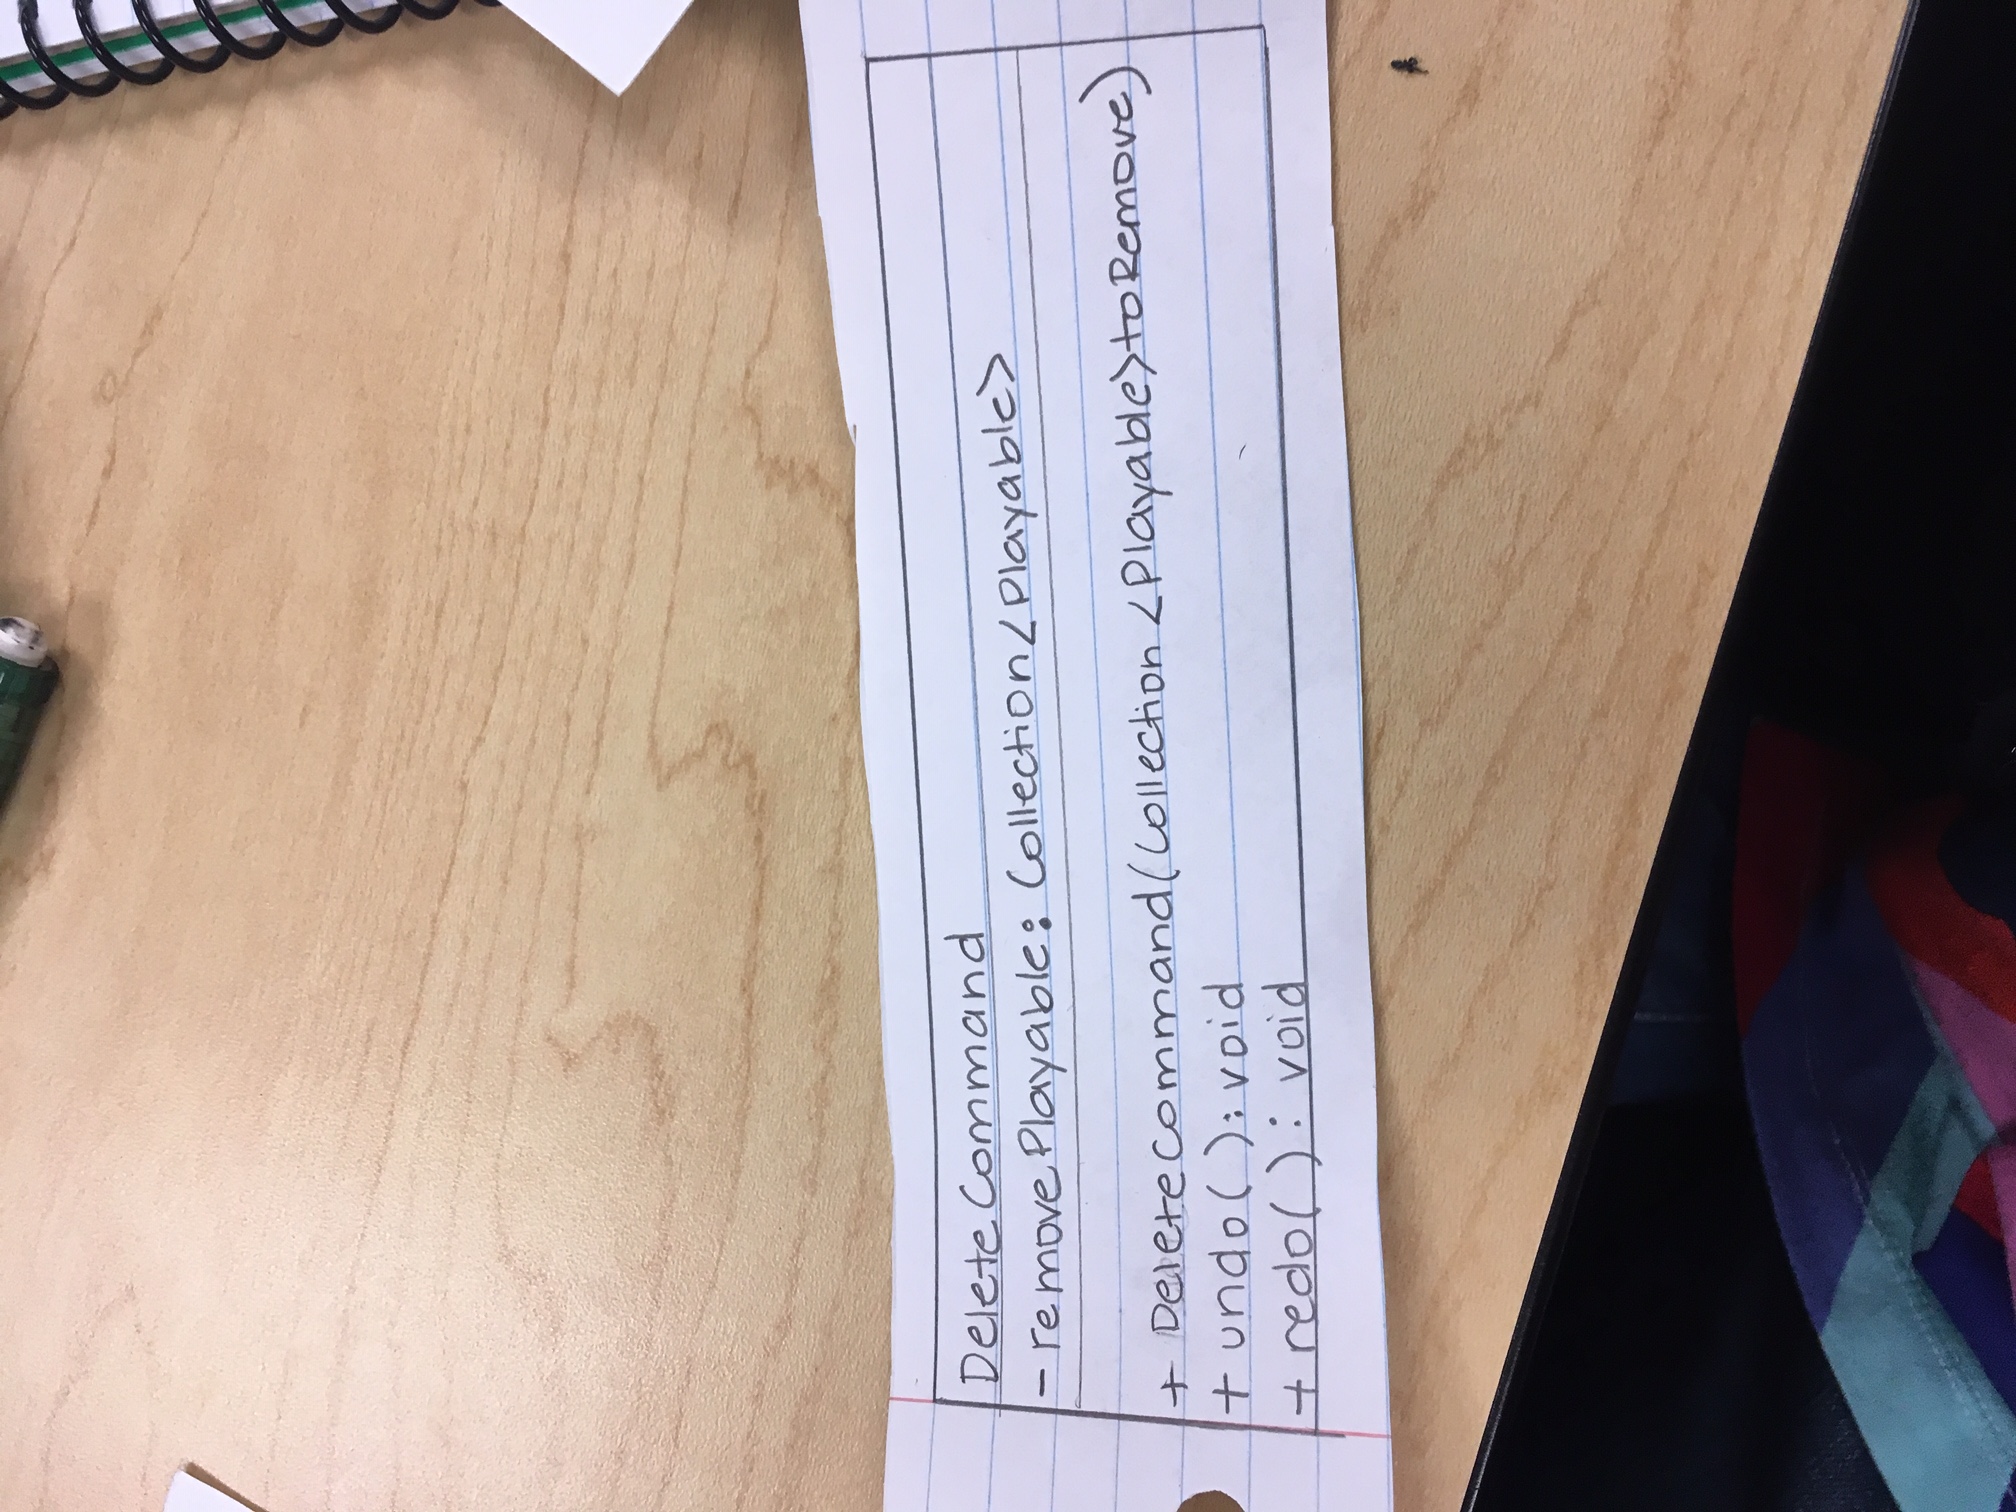 DeleteCommand
- removePlayable: Collection<Playable>
+ DeleteCommand(Collection <Playable> toRemove)
+ undo( ): void
+ redo( ): void